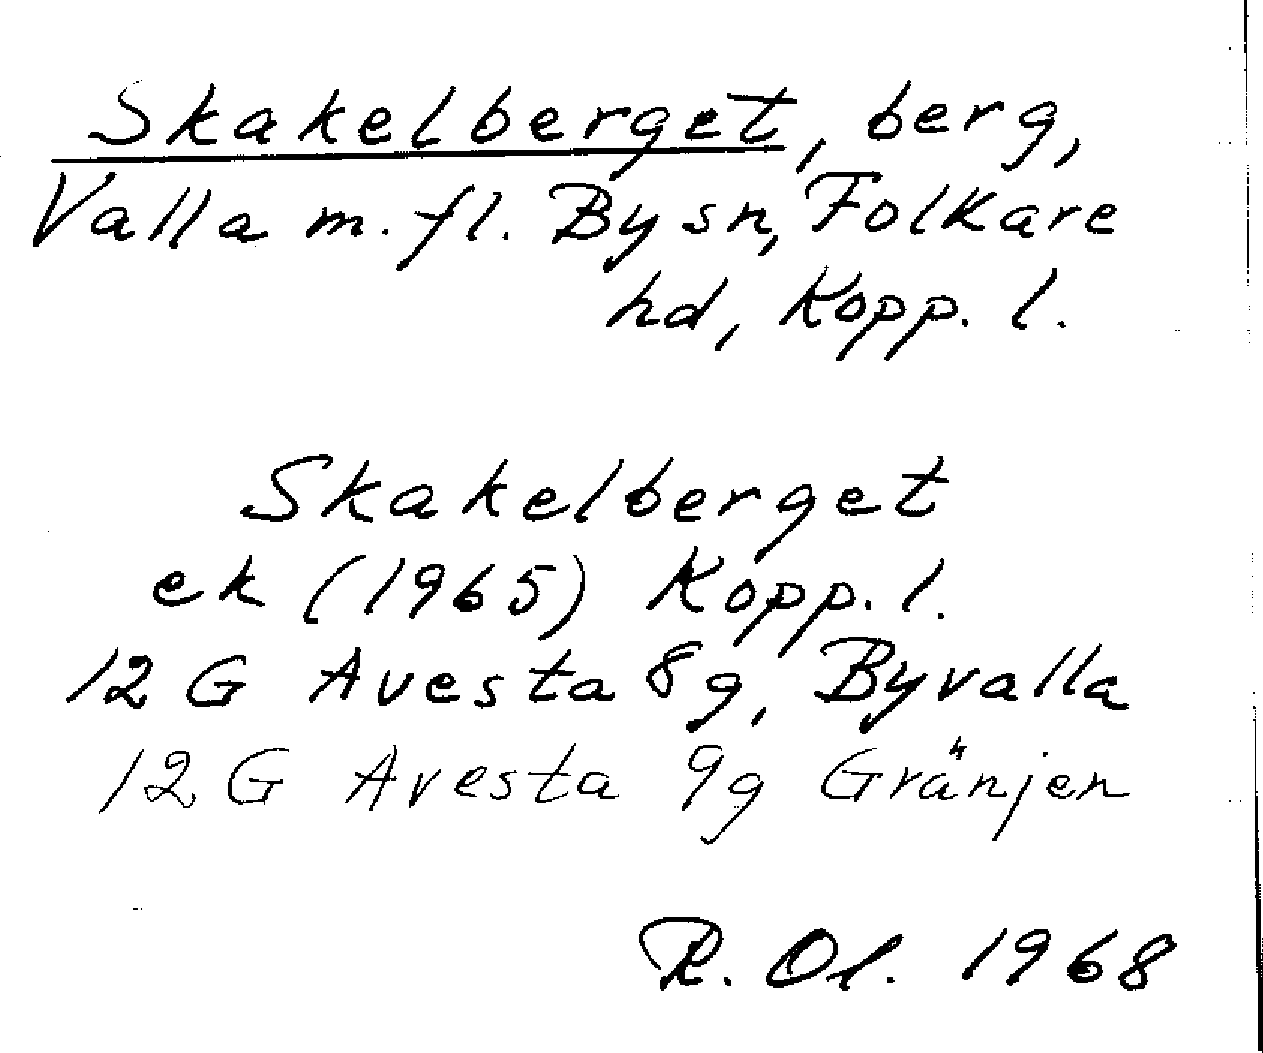 Skakelberget, berg,
Valla m. fl. By sn, Folkare
hd, Kopp. l.
Skakelberget
ek (1965) Kopp. l.
12 G Avesta 8g, Byvalla
12 G Avesta 9g Gränjen
R. Ol. 1968